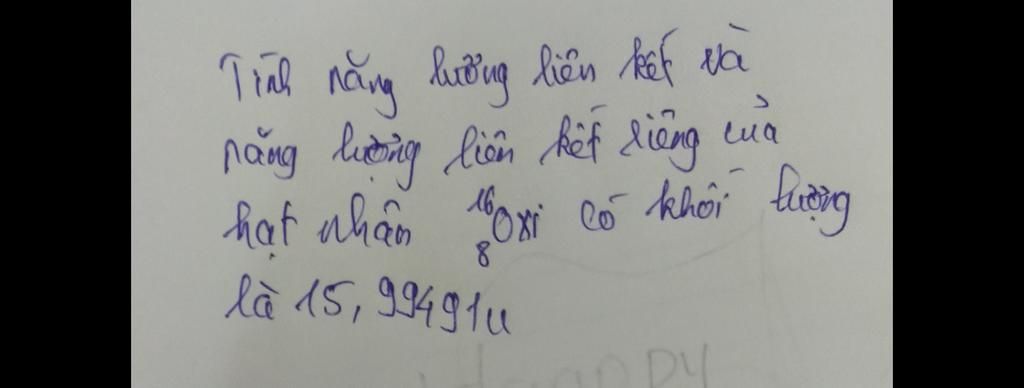 Tính năng lượng liên kết và
năng lượng liên kết riêng của
hạt nhân ¹⁶₈Oxi có khối lượng
là 15,99491u